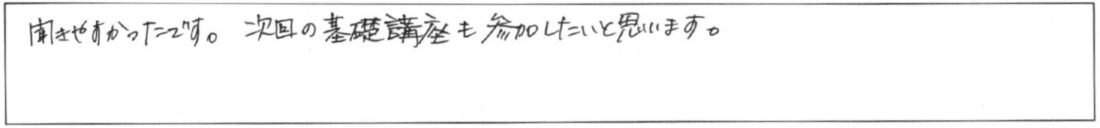 聞きやすかったです。次回の基礎講座も参加したいと思います。